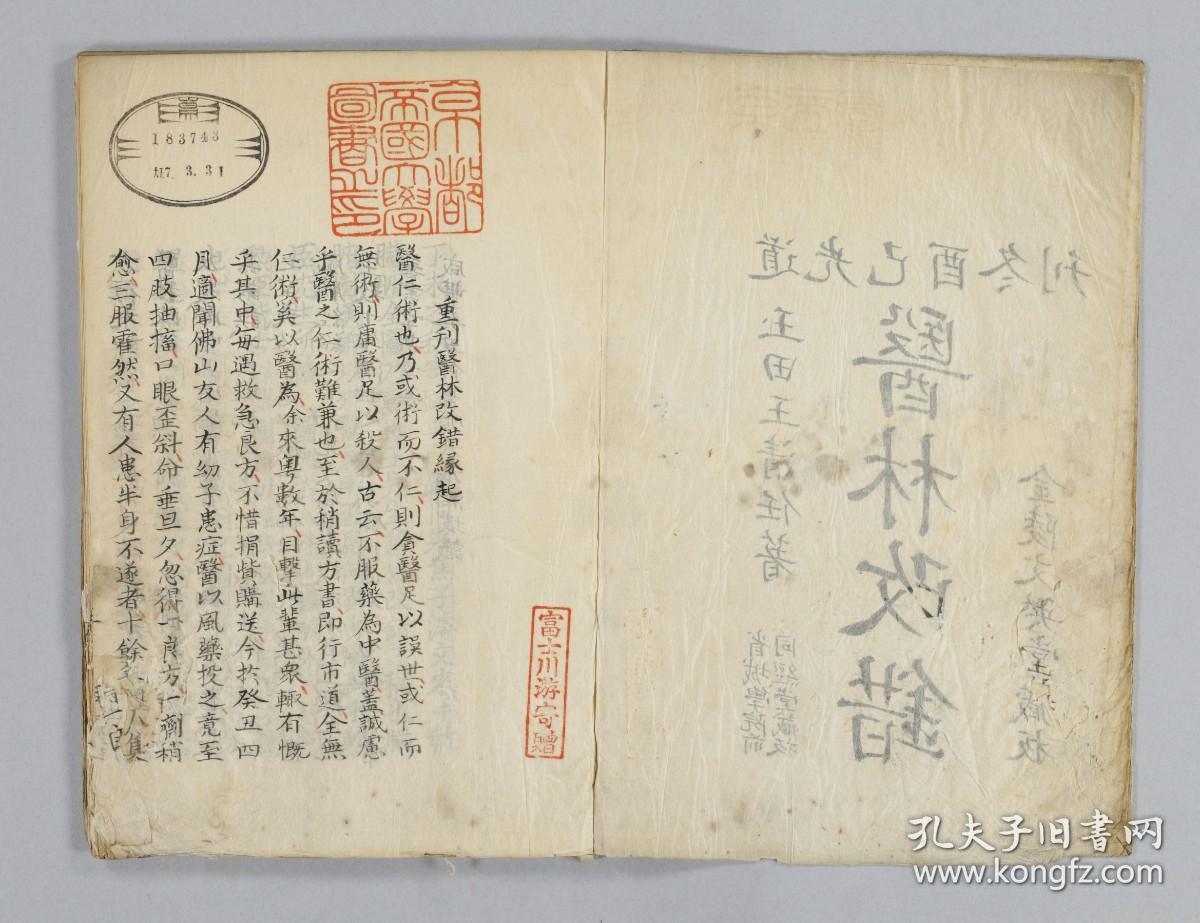 道光己酉冬刊
金陵文英堂藏板
醫林改錯
玉田王清任著
省城學院前
同經堂藏板
京都
帝國大學
圖書之印
183743
大7. 3. 31
富士川游寄贈
重刊醫林改錯緣起
醫仁術也、乃或術而不仁、則貪醫足以誤世、或仁而
無術、則庸醫足以殺人、古云、不服藥為中醫、蓋誠慮
乎醫之仁術難兼也、至於稍讀方書、即行市道、全無
仁術、奚以醫為、余來粵數年、目擊此輩甚眾、輒有慨
乎其中、每遇救急良方、不惜捐貲購送、今於癸丑四
月、適聞佛山友人有幼子患症、醫以風藥投之、竟至
四肢抽搐、口眼歪斜、命垂旦夕、忽得一良方、一劑稍
愈、三服霍然、又有人患半身不遂者、十餘
孔夫子旧书网
www.kongfz.com